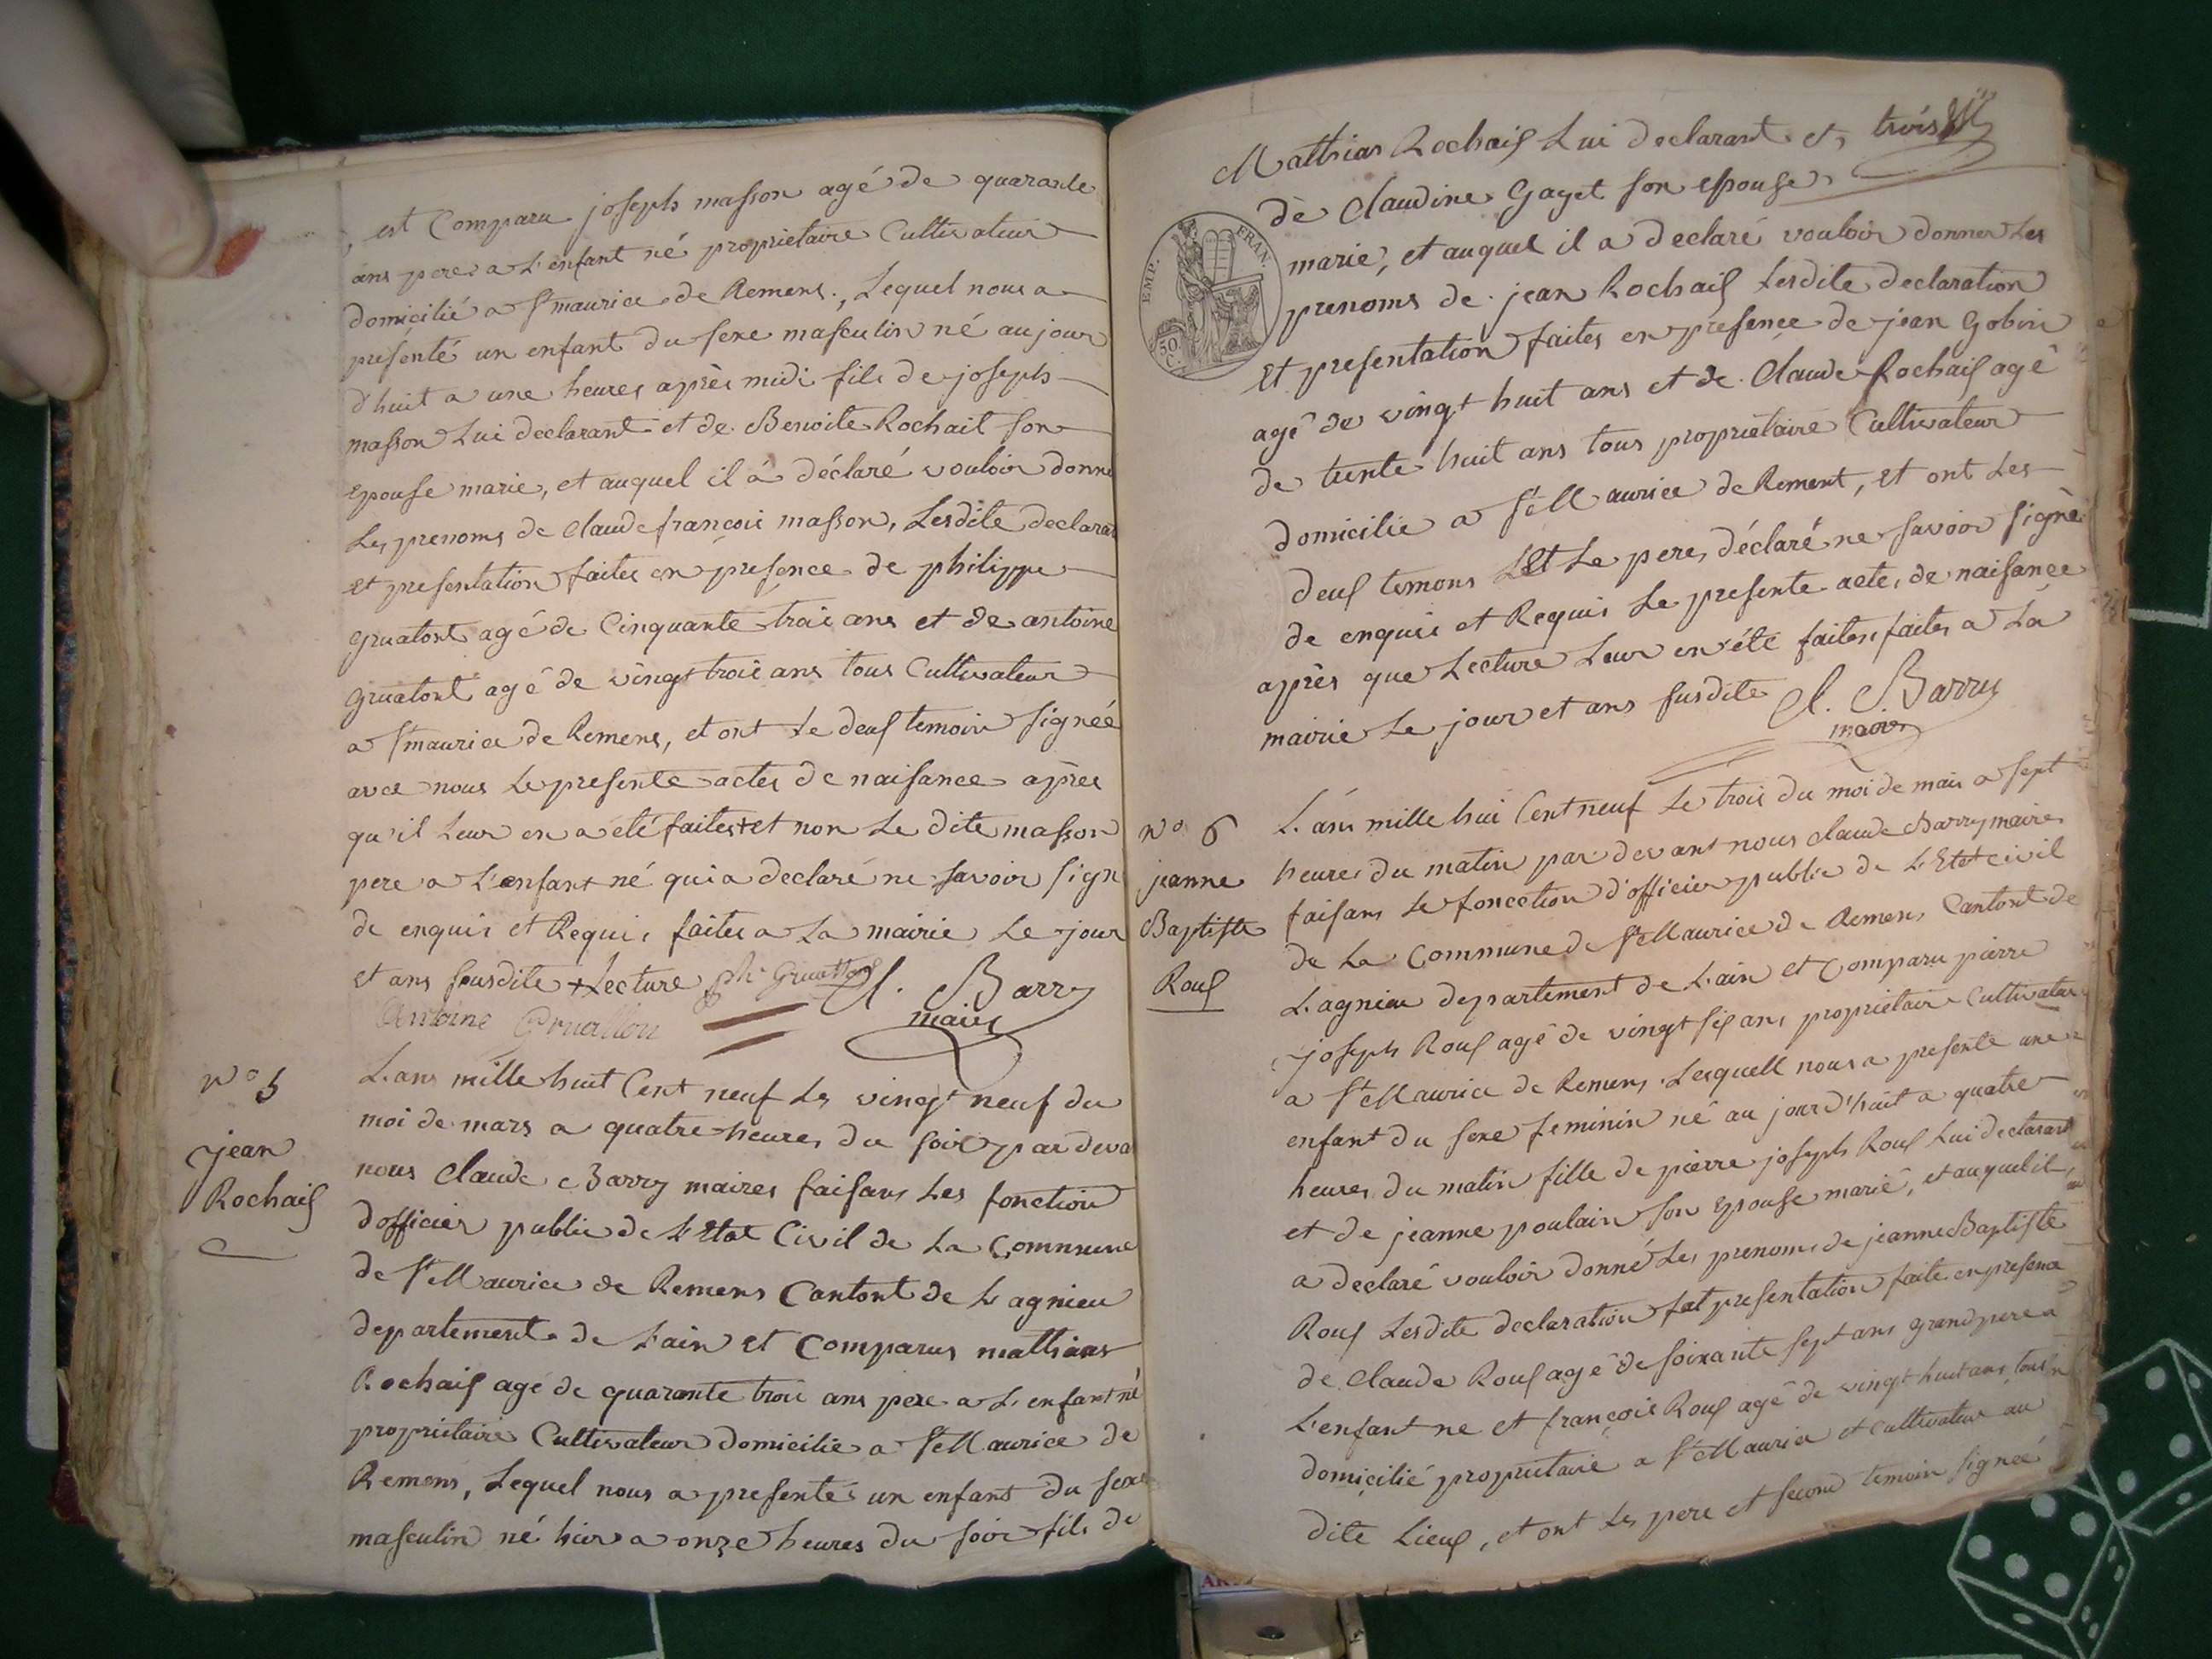 est Comparu joseph masson agé de quarante
ans pere a L'enfant né proprietaire Cultivateur
domicilié a St maurice de Remens, Lequel nous a
présenté un enfant du sexe masculin né aujour
d'huit a une heures après midi fils de joseph
masson Lui declarant et de Benoite Rochait son
Epouse marie, et auquel il à déclaré vouloir donne
Les prenoms de Claude françois masson, Lesdite declarat
et presentation faites en présence de philippe
gruatont agé de Cinquante trois ans et de antoine
gruatont agé de vingt trois ans tous Cultivateur
a St maurice de Remens, et ont Le deux temoin signéé
avec nous Le presente actes de naisance après
qu'il Leur en a été faites + et non Le dite masson
pere a L'enfant né qui a declaré ne savoir sign
de enquis et Requis faites a La mairie Le jour
et ans susdite + Lecture ph. Gruatton Cl. Barry
Antoine Gruatton maire
No 5
jean
Rochaix
L'ans mille huit Cent neuf Les vingt neuf du
moi de mars a quatre heures du soir par deva
nous Claude Barry maires faisans Les fonction
d'officier public de L'Etat Civil de La Commune
de St Maurice de Remens Cantont de Lagnieu
departement de L'ain et Comparus mathias
Rochaix agé de quarante trois ans pere a L'enfant né
proprietaire Cultivateur domicilie a St Maurice de
Remens, Lequel nous a presenté un enfant du sexe
masculin né hier a onze heures du soir fils de
Mathias Rochaix Lui declarant et trois
de Claudine Gayet son epouse
marie, et auquel il a declaré vouloir donner Les
prenoms de jean Rochaix Lesdite declaration
et presentation faites en presence de jean Gobin
agé de vingt huit ans et de Claude Rochaix agé
de trente huit ans tous proprietaire Cultivateur
domicilie a St Maurice de Rement, et ont Les
deux temons et Le pere, déclaré ne savoir signé
de enquis et Requis Le presente acte, de naisance
après que Lecture Leur en été faites, faites a La
mairie Le jour et ans susdite Cl. Barry
maire
EMP. FRAN.
50 C.
No 6
jeanne
Baptiste
Roux
L'ans mille hui Cent neuf Le trois du moi de mai a sept
heures du matin par devant nous Claude Barry maires
faisans Le fonction d'officier public de L'Etat civil
de La Commune de St Maurice de Remens Cantont de
Lagnieu departement de L'ain et Comparu pierre
joseph Roux agé de vingt six ans proprietaire Cultivateur
a St Maurice de Remens Lesquell nous a presente une
enfant du sexe feminin né au jourd'huit a quatre
heures du matin fille de pierre joseph Roux Lui declarant
et de jeanne poulain son Epouse marié, et auquel il
a declaré vouloir donné Les prenoms de jeanne Baptiste
Roux Lesdite declaration et presentation faite en presence
de Claude Roux agé de soixante sept ans grand pere a
L'enfant ne et françois Roux agé de vingt huit ans tous
domicilié proprietaire a St Maurice et Cultivateur au
dite Lieux, et ont Les pere et second temoin signeé